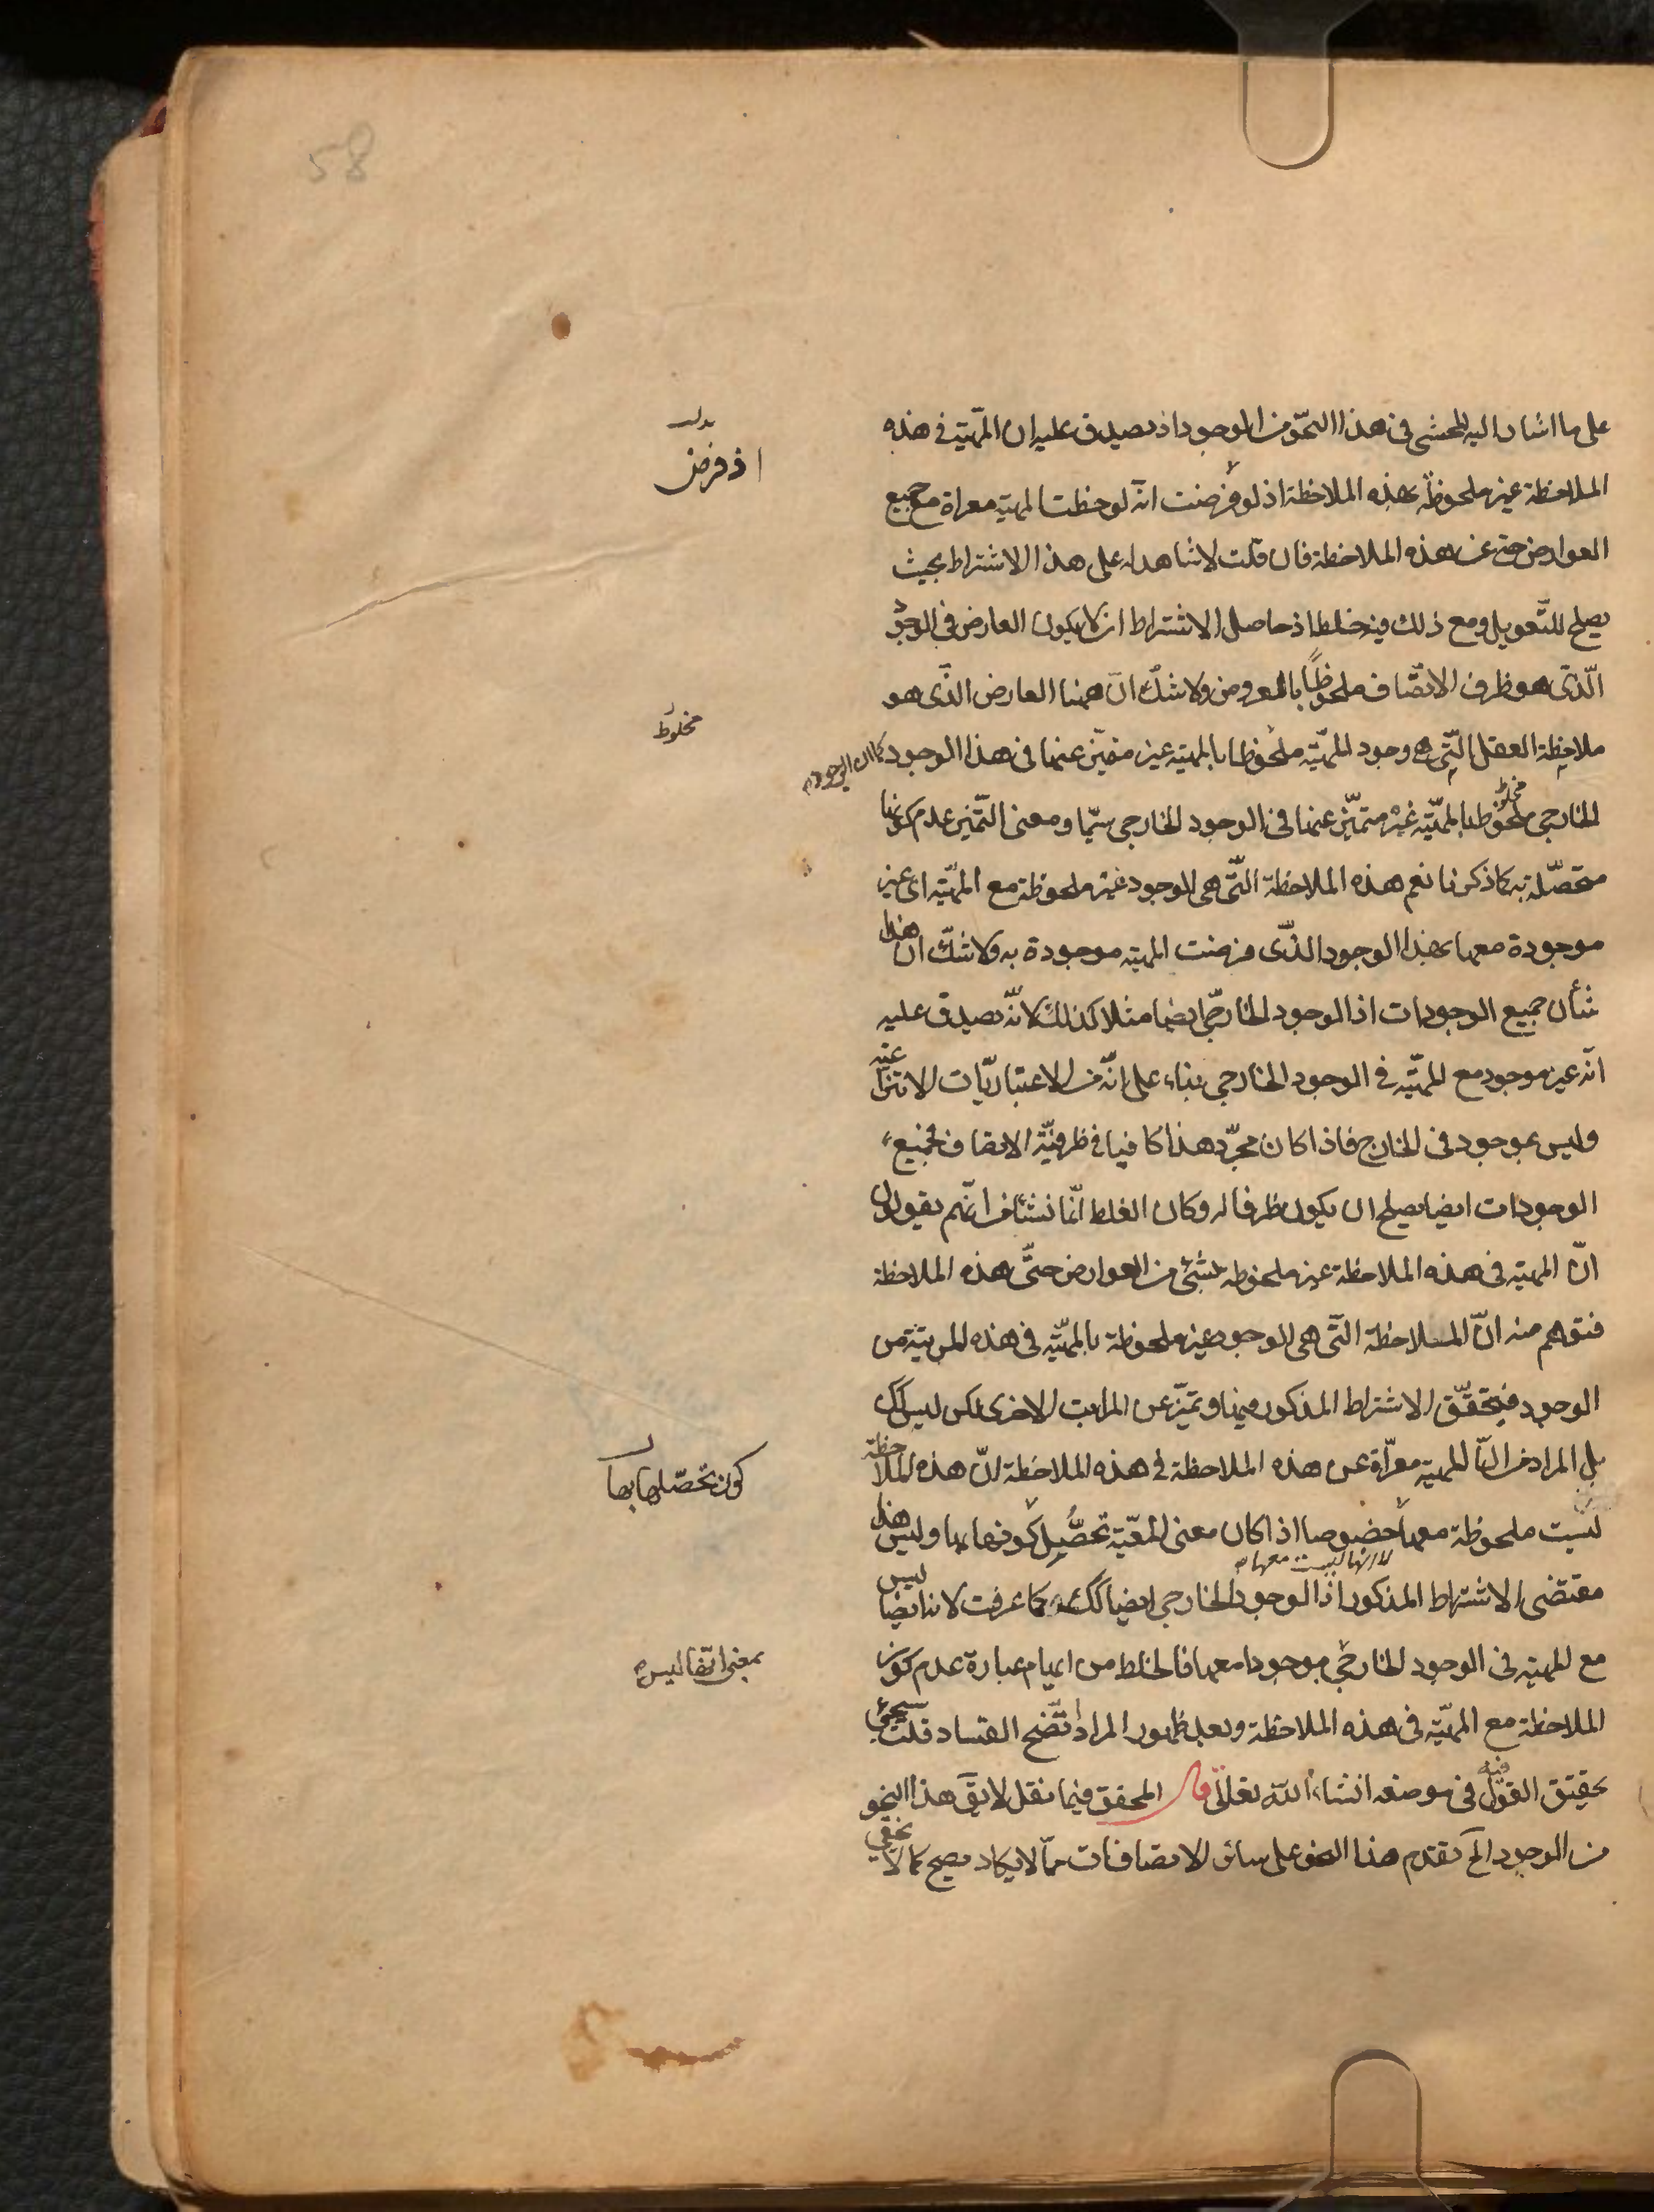 58
على ما اشار اليه المحشى فى هذا النحو من الوجود اذ يصدق عليه ان المهيّة فى هذه
الملاحظة غير ملحوظة بهذه الملاحظة اذ لو فرضت انه لوحظت المهية معراة مع جميع
العوارض حتى عن هذه الملاحظة فان قلت لا شاهد له على هذا الاشتراط بحيث
يصلح للتّعويل ومع ذلك فيه خلط اذ حاصل الاشتراط ان لا يكون العارض فى الوجود
الّذى هو ظرف الاتصّاف ملحوظًا بالمعروض ولا شكّ انّ ههنا العارض الّذى هو
ملاحظة العقل الّتى هى وجود المهيّة ملحوظا بالمهية غير متميّز عنها فى هذا الوجود كما ان الوجود
الخارجى ملحوظا بالمهيّة غير متميّز عنها فى الوجود الخارجى سيّما ومعنى التّميّز عدم كونها
مخلوط
متحصّلة به كما ذكرنا نعم هذه الملاحظة الّتى هى الوجود غير ملحوظة مع المهيّة اى غير
موجودة معها بهذا الوجود الّذى فرضت المهية موجودة به ولا شكّ ان هذا
شأن جميع الوجودات اذ الوجود الخارجىّ ايضا مثلا كذلك لانّه يصدق عليه
انّه غير موجود مع المهيّة فى الوجود الخارجى بناء على انّه من الاعتباريّات الانتزاعية
وليس بموجود فى الخارج فاذا كان مجرّد هذا كافيا فى ظرفيّة الاتصاف فجميع
الوجودات ايضا يصلح ان يكون ظرفا له وكان الغلط انّما نشأ من انّهم يقولون
انّ المهية فى هذه الملاحظة غير ملحوظه بشئ من العوارض حتّى هذه الملاحظة
فتوهم منه انّ الملاحظة الّتى هى الوجود غير ملحوظة بالمهيّة فى هذه المرتبة من
الوجود فيتحقّق الاشتراط المذكور فيها وتميّز عن المراتب الاخرى لكن ليس كك
بل المراد من انّ المهية معرّاة عن هذه الملاحظة فى هذه الملاحظة انّ هذه الملاحظة
ليست ملحوظة معها خصوصا اذا كان معنى المعيّة تحصّل كونها بها وليس هذا
لا انها ليست معها
مقتضى الاشتراط المذكور اذ الوجود الخارجى ايضا كك كما عرفت لانه ايضا ليس
مع المهية فى الوجود الخارجى موجودا معها فالخلط من ايهام عبارة عدم كون
الملاحظة مع المهيّة فى هذه الملاحظة وبعد ظهور المراد اتّضح الفساد قلت سيجئ
تحقيق القول فيه فى موضعه انشاء اللّه تعالى قال المحقق فيما نقل لا يقَ هذا النحو
من الوجود الخ تقدم هذا النحو على سائر الاتصافات ممّا لا يكاد يصح كما لا يخفى
بدل
اذ فرض
مخلوط
كون تحصّلها بها
بمعنى انها ليس